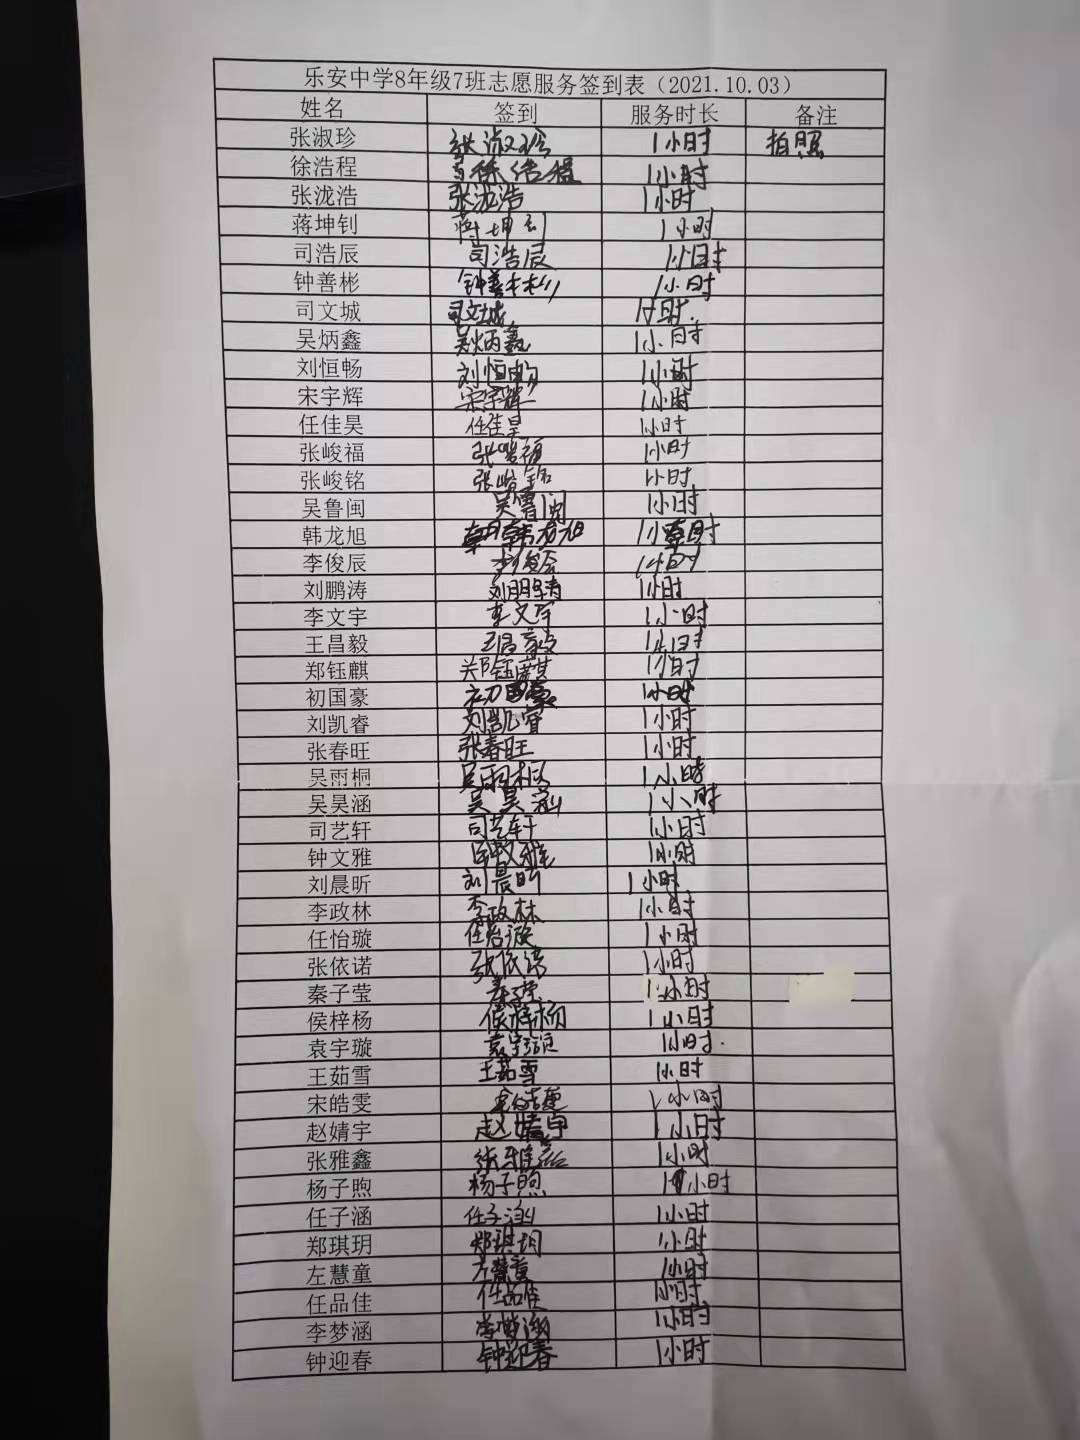 乐安中学8年级7班志愿服务签到表（2021.10.03）
姓名 签到 服务时长 备注
张淑珍 张淑珍 1小时 拍照
徐浩程 徐浩程 1小时
张泷浩 张泷浩 1小时
蒋坤钊 蒋坤钊 1小时
司浩辰 司浩辰 1小时
钟善彬 钟善彬 1小时
司文城 司文城 1小时.
吴炳鑫 吴炳鑫 1小时
刘恒畅 刘恒畅 1小时
宋宇辉 宋宇辉 1小时
任佳昊 任佳昊 1小时
张峻福 张峻福 1小时
张峻铭 张峻铭 1小时
吴鲁闽 吴鲁闽 1小时
韩龙旭 韩龙旭 1小时
李俊辰 李俊辰 1小时
刘鹏涛 刘鹏涛 1小时
李文宇 李文宇 1小时
王昌毅 王昌毅 1小时
郑钰麒 郑钰麒 1小时
初国豪 初国豪 1小时
刘凯睿 刘凯睿 1小时
张春旺 张春旺 1小时
吴雨桐 吴雨桐 1小时
吴昊涵 吴昊涵 1小时
司艺轩 司艺轩 1小时
钟文雅 钟文雅 1小时
刘晨昕 刘晨昕 1小时
李政林 李政林 1小时
任怡璇 任怡璇 1小时
张依诺 张依诺 1小时
秦子莹 秦子莹 1小时
侯梓杨 侯梓杨 1小时
袁宇璇 袁宇璇 1小时.
王茹雪 王茹雪 1小时
宋皓雯 1小时
赵婧宇 赵婧宇 1小时
张雅鑫 张雅鑫 1小时
杨子煦 杨子煦 1小时
任子涵 任子涵 1小时
郑琪玥 郑琪玥 1小时
左慧童 左慧童 1小时
任品佳 任品佳 1小时
李梦涵 李梦涵 1小时
钟迎春 钟迎春 1小时